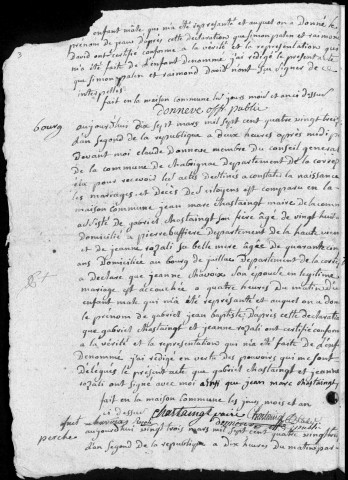 enfant mâle qui m'a été représenté et auquel on a donné le
prénom de jean d'après cette déclaration que simon palin et raimond
david ont certifié conforme a la vérité et la représentation qui
m'a été faite de l'enfant dénommé j'ai rédigé le présent acte
que simon palin et raimond david n'ont sçu signer de ce
interpellés
fait en la maison commune les jours mois et an ci dessus
donneve off. public
bourg
aujourd'hui dix sept mars mil sept cent quatre vingt treize
l'an second de la république a deux heures après midi
devant moi claude donneve membre du conseil général
de la commune de chabrignac département de la corrèze
élu pour recevoir les actes destinés a constater la naissance
les mariages et décès des citoyens est comparu en la
maison commune jean marc chastaingt maire de la commune
assisté de gabriel chastaingt son frère âgé de vingt huit
domicilié a pierre buffiere département de la haute vienne
et de jeanne rozali sa belle mère âgée de quarante cinq
ans domiciliée au bourg de juillac département de la corrèze
a déclaré que jeanne chavoix son épouse en légitime
mariage est accouchée a quatre heures du matin d'un
enfant mâle qui m'a été représenté et auquel on a donné
le prénom de gabriel jean baptiste, d'après cette déclaration
que gabriel chastaingt et jeanne rozali ont certifié conforme
a la vérité et la représentation qui m'a été faite de l'enfant
dénommé j'ai rédigé en vertu des pouvoirs qui me sont
délégués le présent acte que gabriel chastaingt et jeanne
rozali ont signé avec moi ainsi que jean marc chastaingt
fait en la maison commune les jours, mois et an
ci dessus chastaingt
perche
aujourd'hui vingt trois mars mil sept cent quatre vingt treize
l'an second de la république a dix heures du matin par